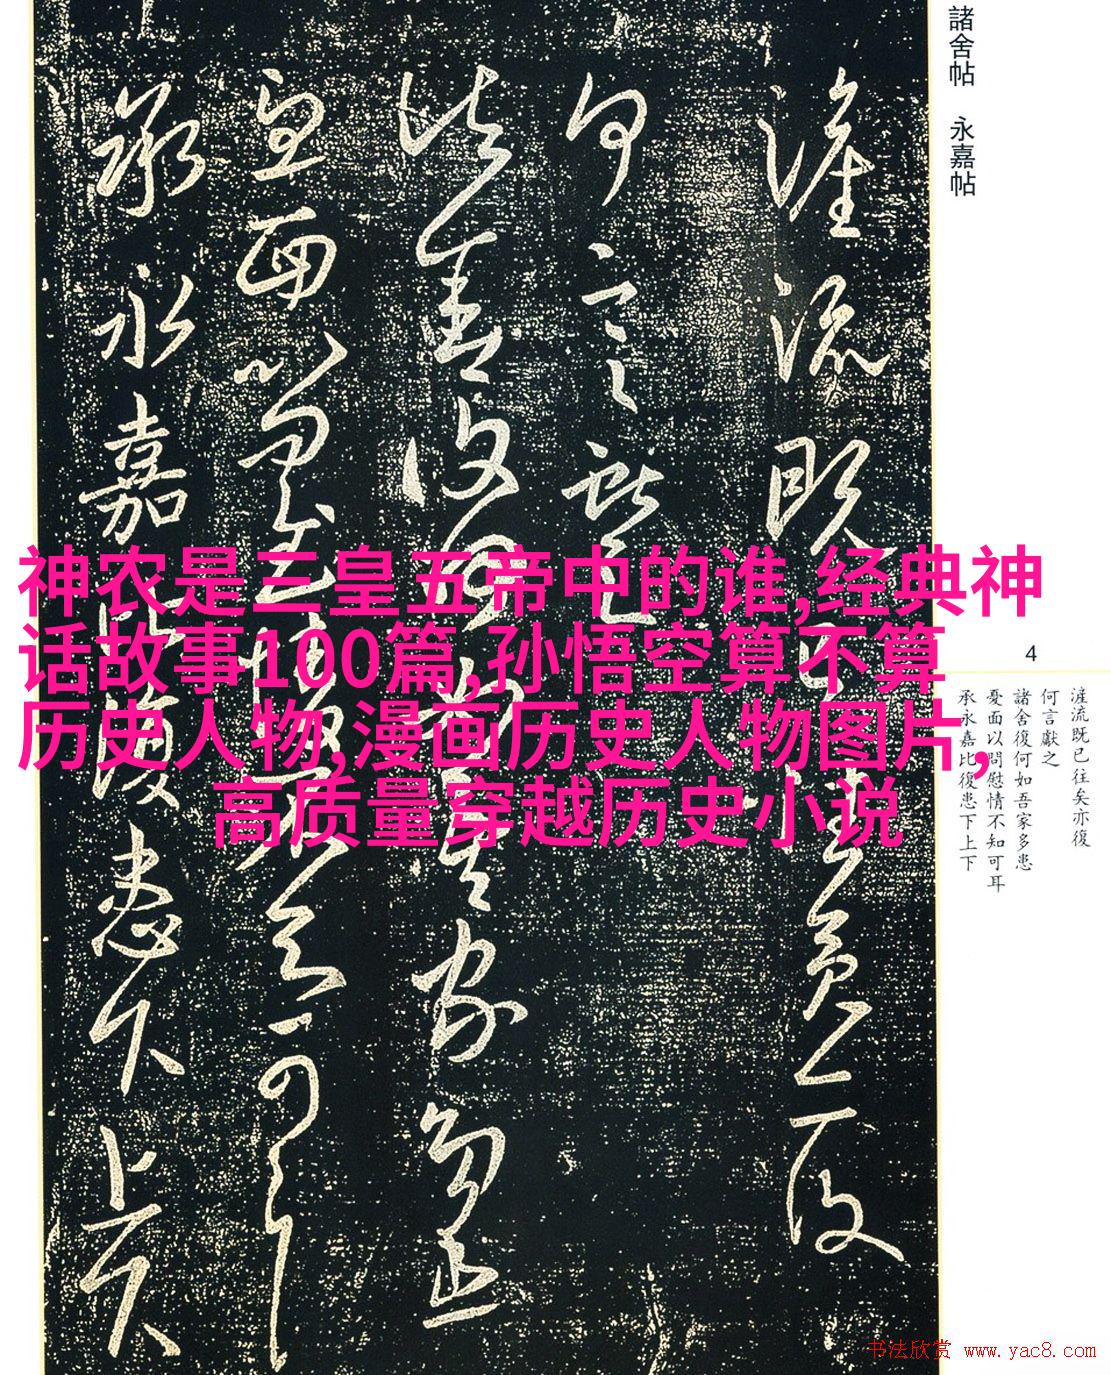 諸舍帖 永嘉帖
神农是三皇五帝中的谁,经典神
话故事100篇,孙悟空算不算
历史人物,漫画历史人物图片,
高质量穿越历史小说
4
漄流既已往矣亦復
何言獻之
諸舍復何如吾家多患
憂面以問慰情不知可耳
承永嘉比復患下上下
书法欣赏 www.yac8.com